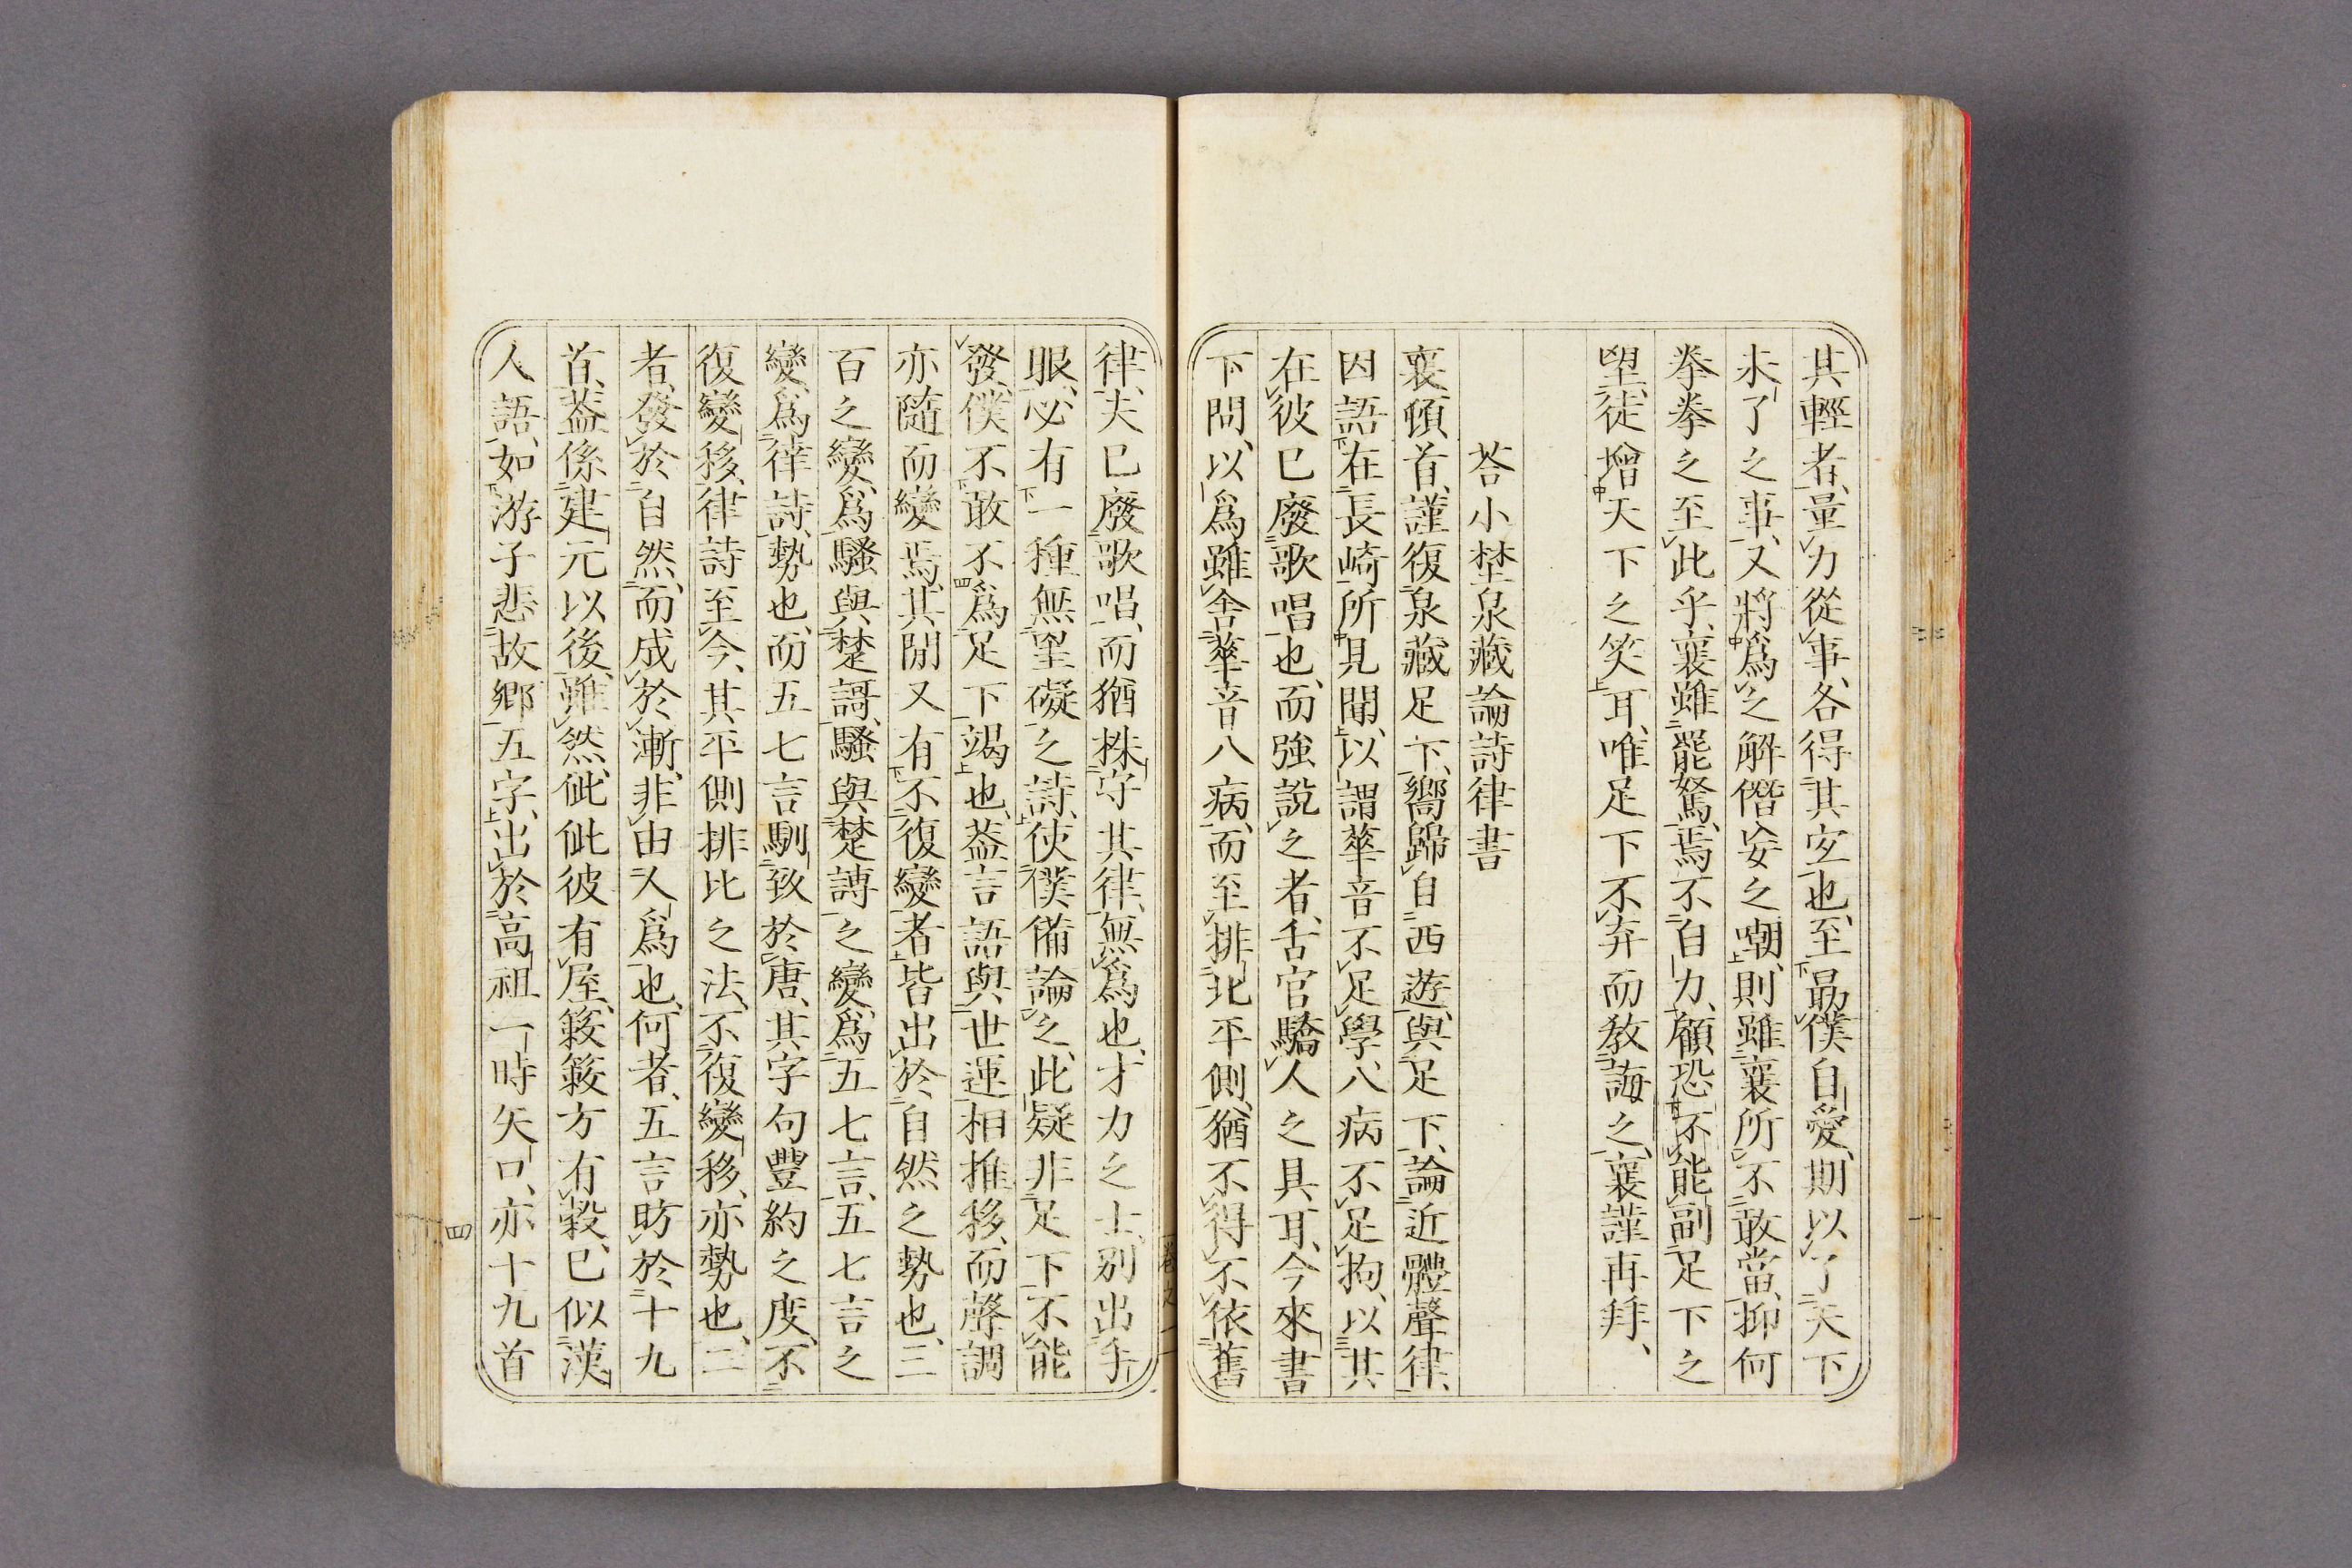 其輕者、量力從事、各得其宜也、至最僕自愛、期以了天下
未了之事、又將爲之解僭妄之嘲、則雖襄所不敢當、抑何
拳拳之至此乎、襄雖罷駑、焉不自力、顧恐不能副足下之
望、徒增天下之笑耳、唯足下不弃而教誨之、襄謹再拜、
荅小埜泉藏論詩律書
襄頓首、謹復泉藏足下、嚮歸自西遊、與足下、論近體聲律、
因語在長崎所見聞、以謂華音不足學、八病不足拘、以其
在彼已廢歌唱也、而強說之者、舌官驕人之具耳、今來書
下問、以爲雖舍華音八病、而至排比平側、猶不得不依舊
律、夫已廢歌唱、而猶株守其律、無爲也、才力之士、別出手
眼、必有一種無罣礙之詩、使僕備論之、此疑非足下不能
發、僕不敢不爲足下竭也、葢言語與世運相推移、而聲調
亦隨而變焉、其閒又有不復變者、皆出於自然之勢也、三
百之變、爲騷與楚謌、騷與楚謌之變、爲五七言、五七言之
變、爲律詩、勢也、而五七言馴致於唐、其字句豐約之度、不
復變移、律詩至今、其平側排比之法、不復變移、亦勢也、二
者、發於自然、而成於漸、非由人爲也、何者、五言昉於十九
首、葢係建元以後、雖然、佌佌彼有屋、蔌蔌方有穀、已似漢
人語、如游子悲故鄉五字、出於高祖一時矢口、亦十九首
卷之一
四